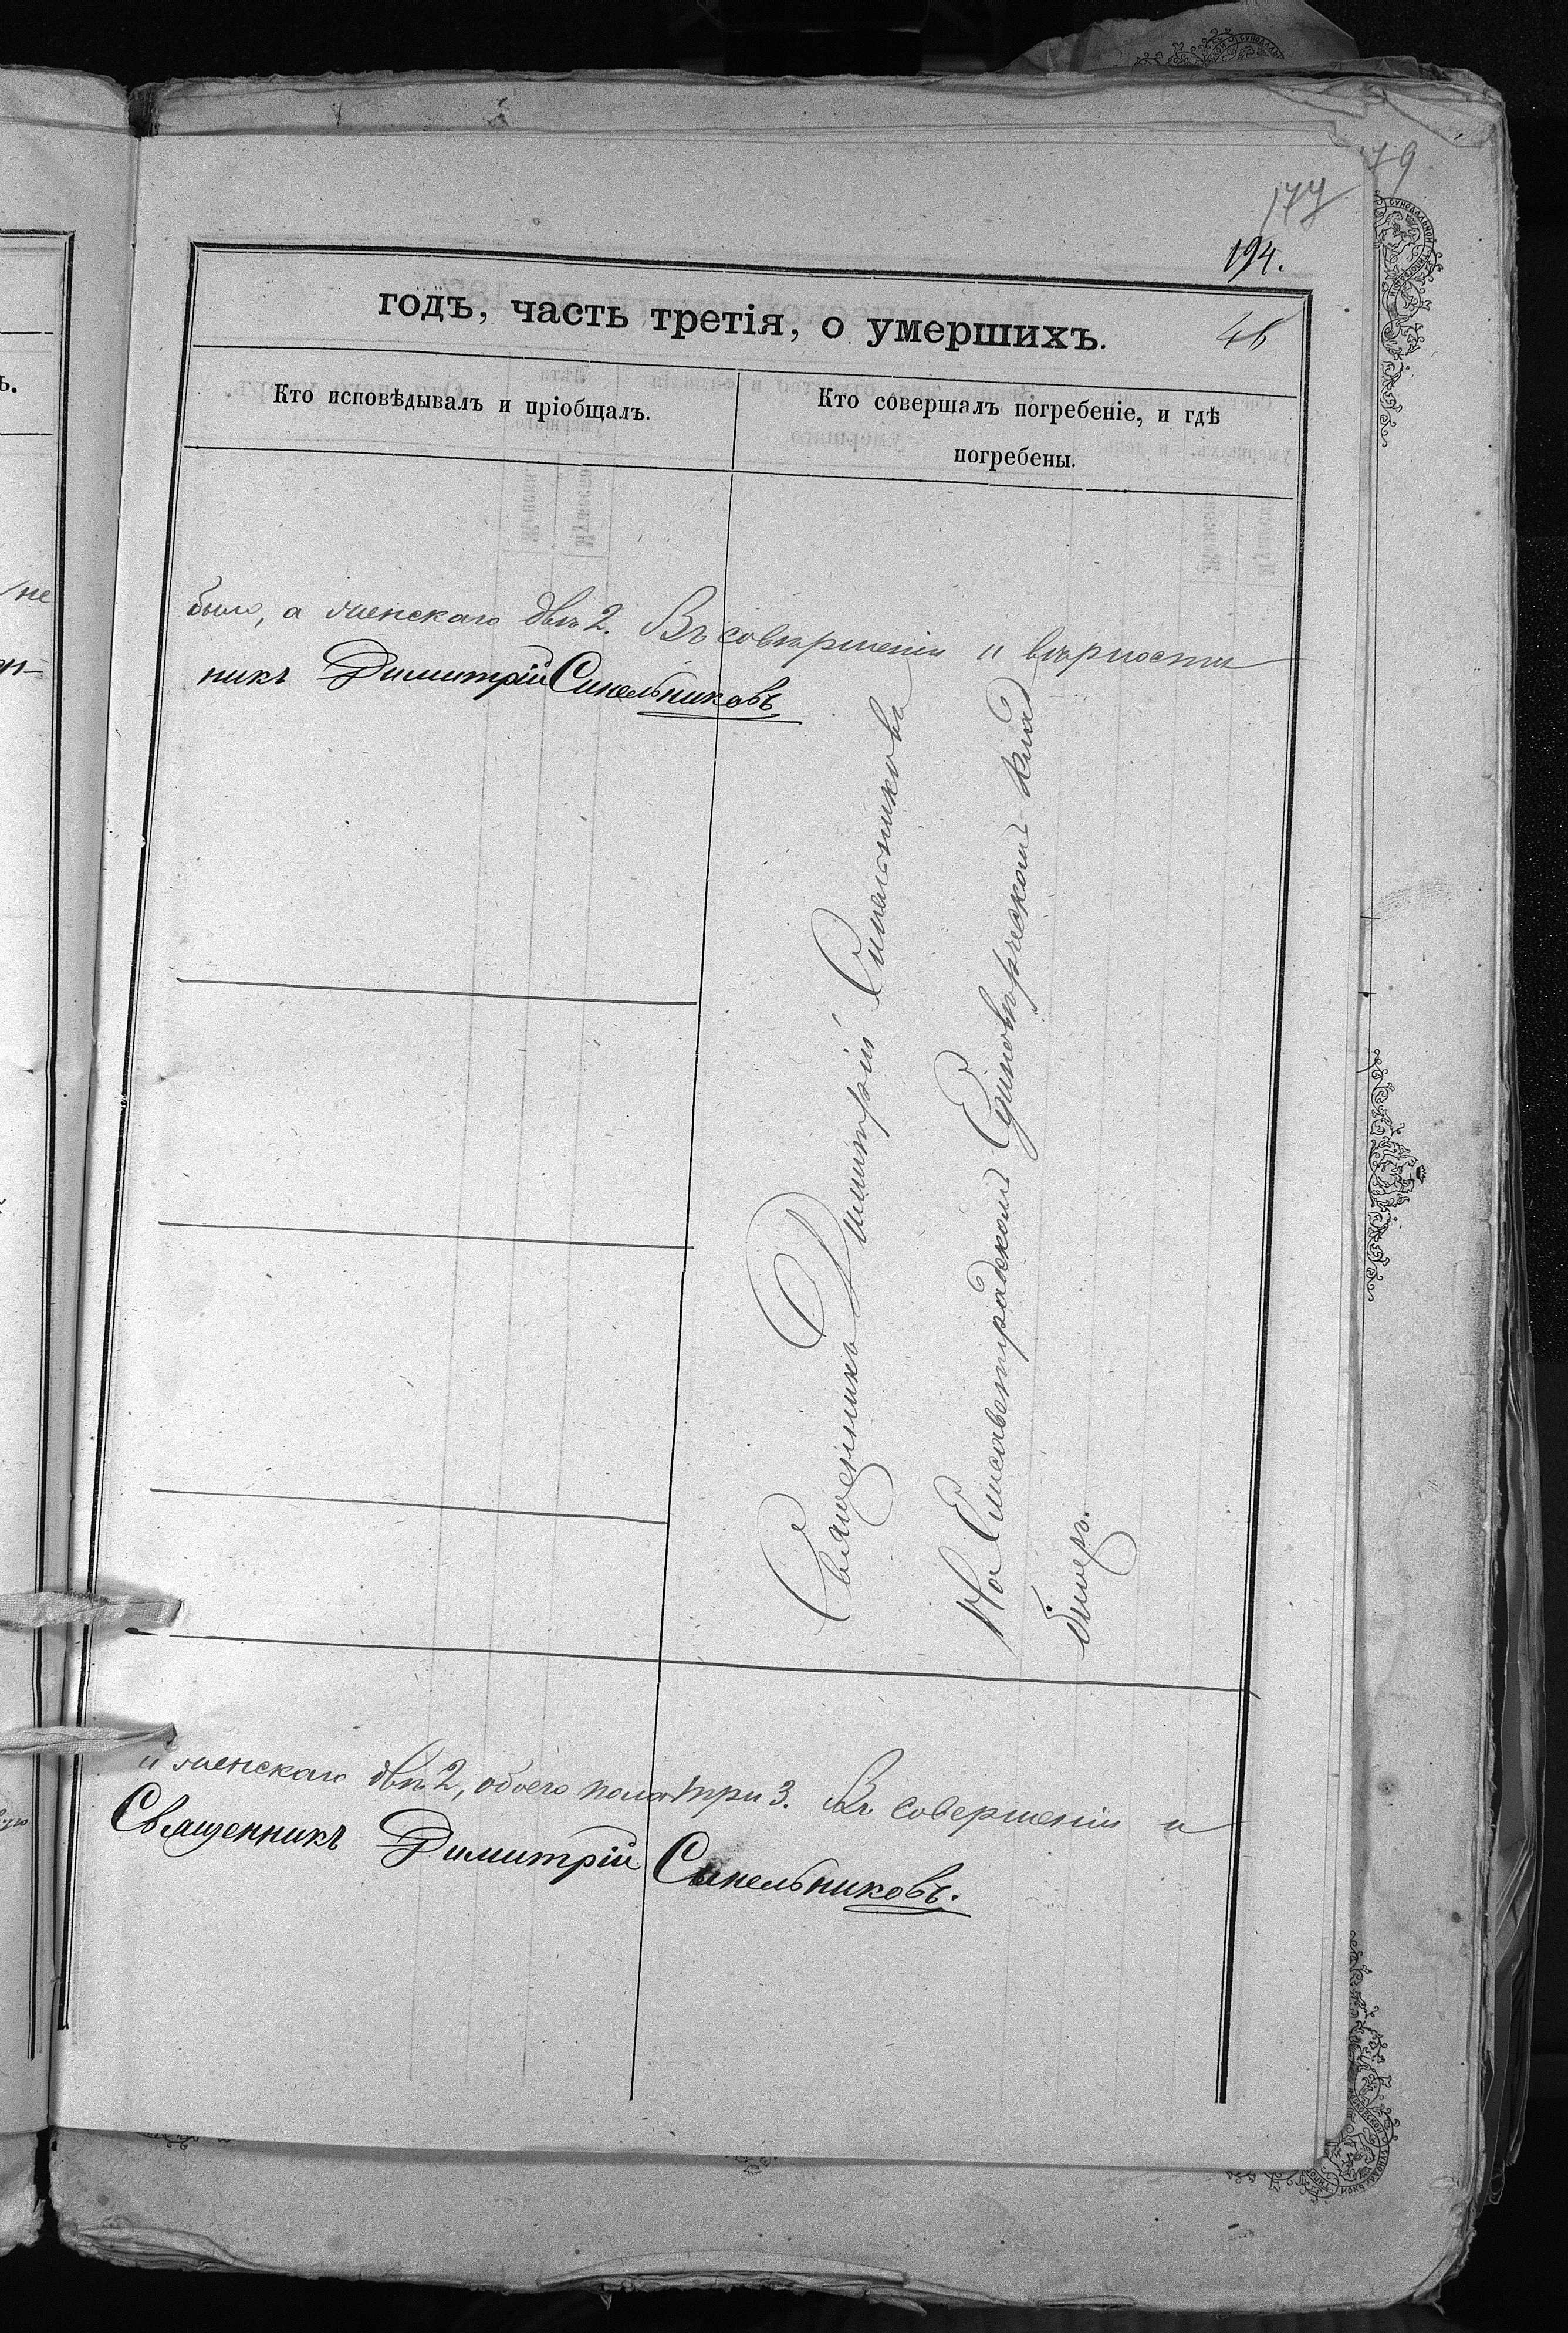 179
177
194.
годъ, часть третія, о умершихъ.
46
Кто исповѣдывалъ и пріобщалъ.
Кто совершалъ погребеніе, и гдѣ
погребены.
было, а женскаго двѣ 2. Въ совершеніи и вѣрности
никъ Димитрій Синельниковъ
Священникъ Димитрій Синельниковъ
На Елисаветградскомъ Единовѣрческомъ клад
бищѣ.
и женскаго двѣ 2, обоего пола три 3. Въ совершеніи и
Священникъ Димитрій Синельниковъ.